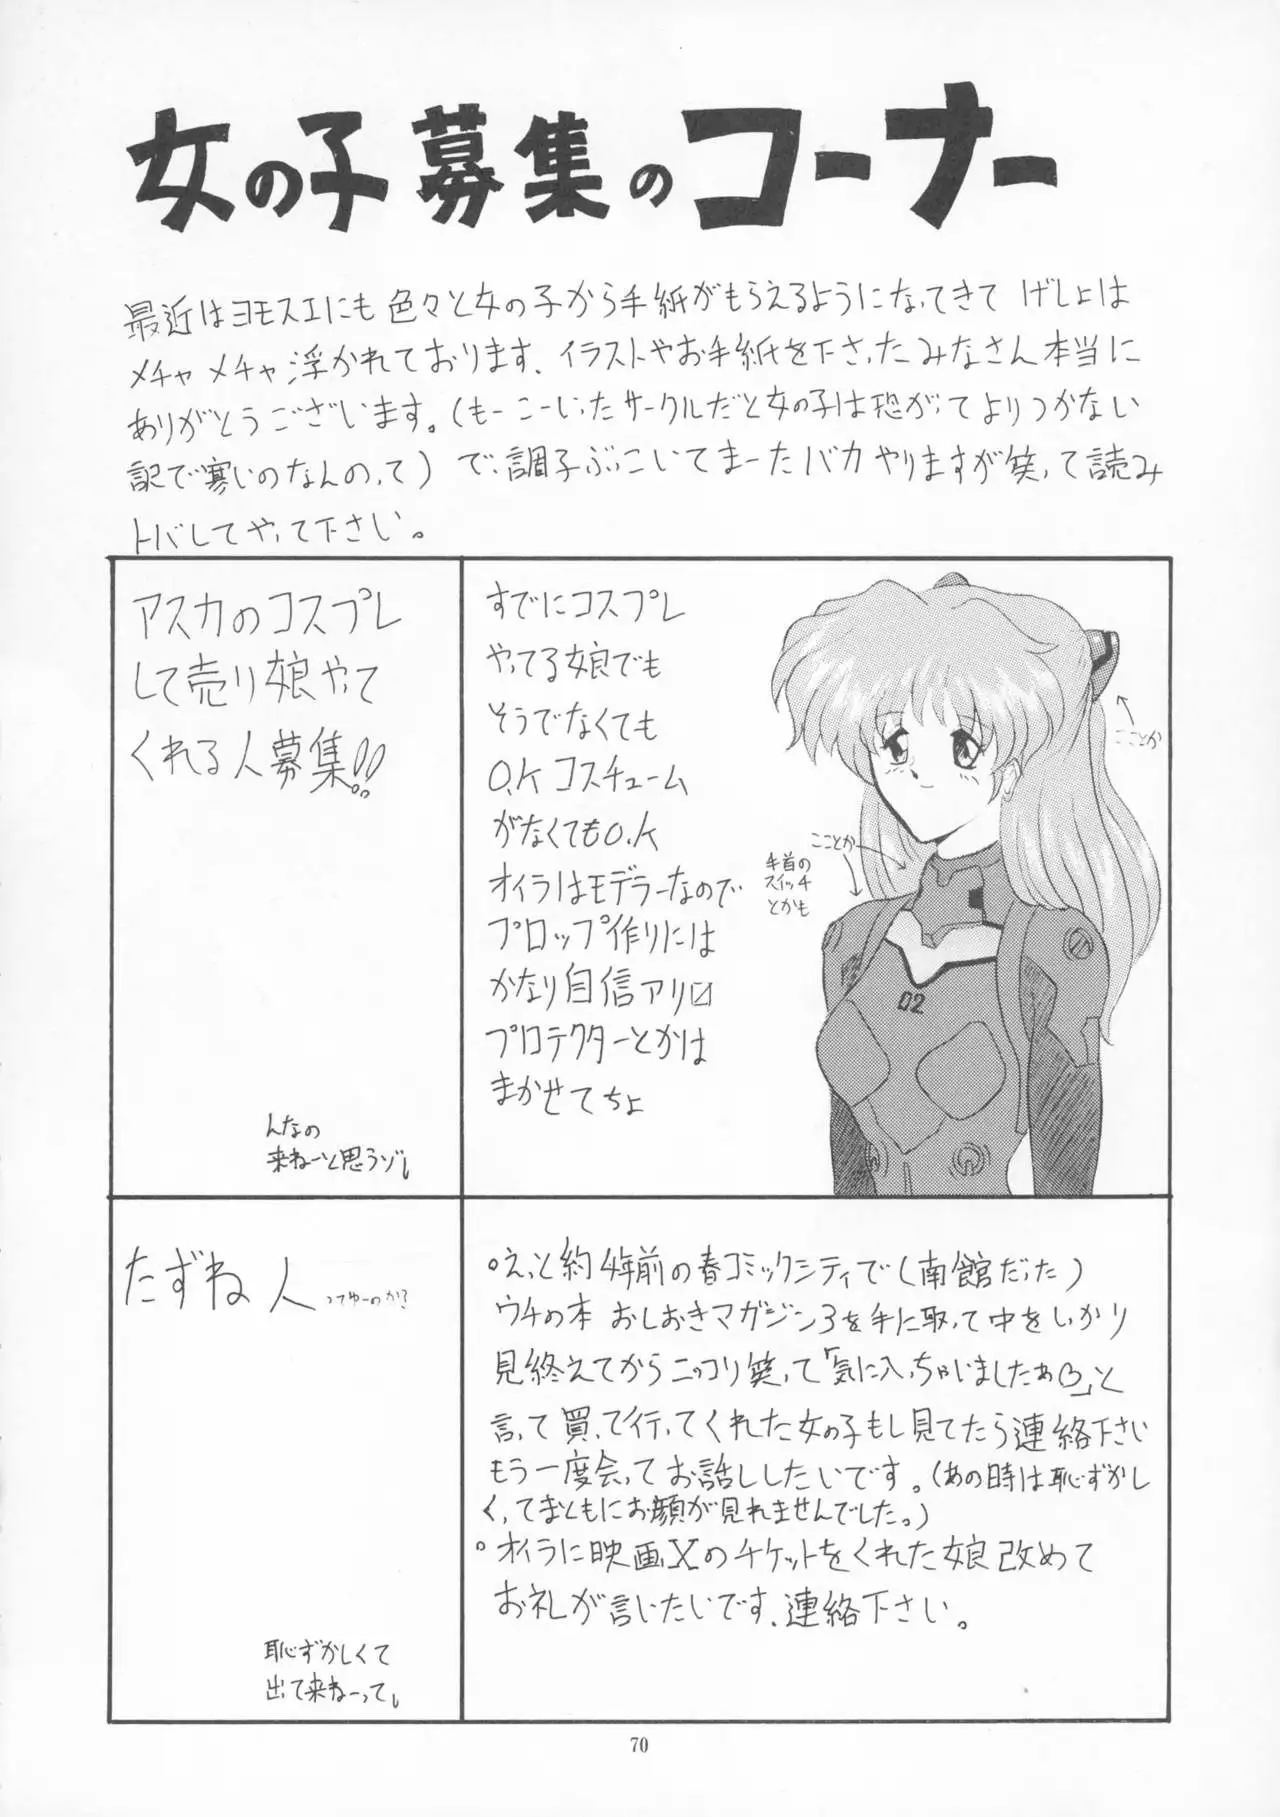 女の子募集のコーナー
最近はヨモスエにも色々と女の子から手紙がもらえるようになってきて げしょは
メチャメチャ浮かれております、イラストやお手紙を下さったみなさん本当に
ありがとうございます。(もーこーいったサークルだと女の子は恐がってよりつかない
記で寒いのなんのって)で、調子ぶっこいてまーたバカやりますが笑って読み
トバしてやって下さい。
アスカのコスプレ
して売り娘やって
くれる人募集!!
んなの
来ねーと思うゾ
すでにコスプレ
やってる娘でも
そうでなくても
O.K コスチューム
がなくてもO.K
オイラはモデラーなので
プロップ作りには
かなり自信アリ
プロテクターとかは
まかせてちょ
こことか
こことか
手首の
スイッチ
とかも
02
たずね人 ってゆーのか?
恥ずかしくて
出て来ねーって
えっと約4年前の春コミックシティで(南館だった)
ウチの本 おしおきマガジン3を手に取って中をしっかり
見終えてからニッコリ笑って「気に入っちゃいましたぁ」と
言って買って行ってくれた女の子もし見てたら連絡下さい
もう一度会ってお話ししたいです。(あの時は恥ずかし
くってまともにお顔が見れませんでした。)
オイラに映画Xのチケットをくれた娘改めて
お礼が言いたいです、連絡下さい。
70